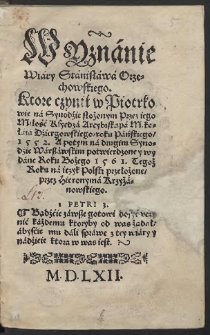 Wyznánie
Wiáry Stánisłáwá Orze-
chowskiego.
Ktore czynił w Piotrko
wie ná Synodzie złożonym Przez iego
Miłość Księdzá Arcybiskupá Mi-
łáiá Dziergowskiego roku Páńskiego
1552. A potym ná drugim Syno-
dzie Wárszáwskim potwierdzone y wy
dáne Roku Bożego 1561. Tegoż
Roku ná ięzyk Polski przełożone,
przez Hieronymá Krzyżá-
nowskiego.
1 PETRI 3.
Bądźcie záwsze gotowi dosyć vczy
nić káżdemu ktoryby od was żądał
ábyście mu dáli spráwę z tey wiáry y
nádzieie ktora w was iest.
M. D. LXII.